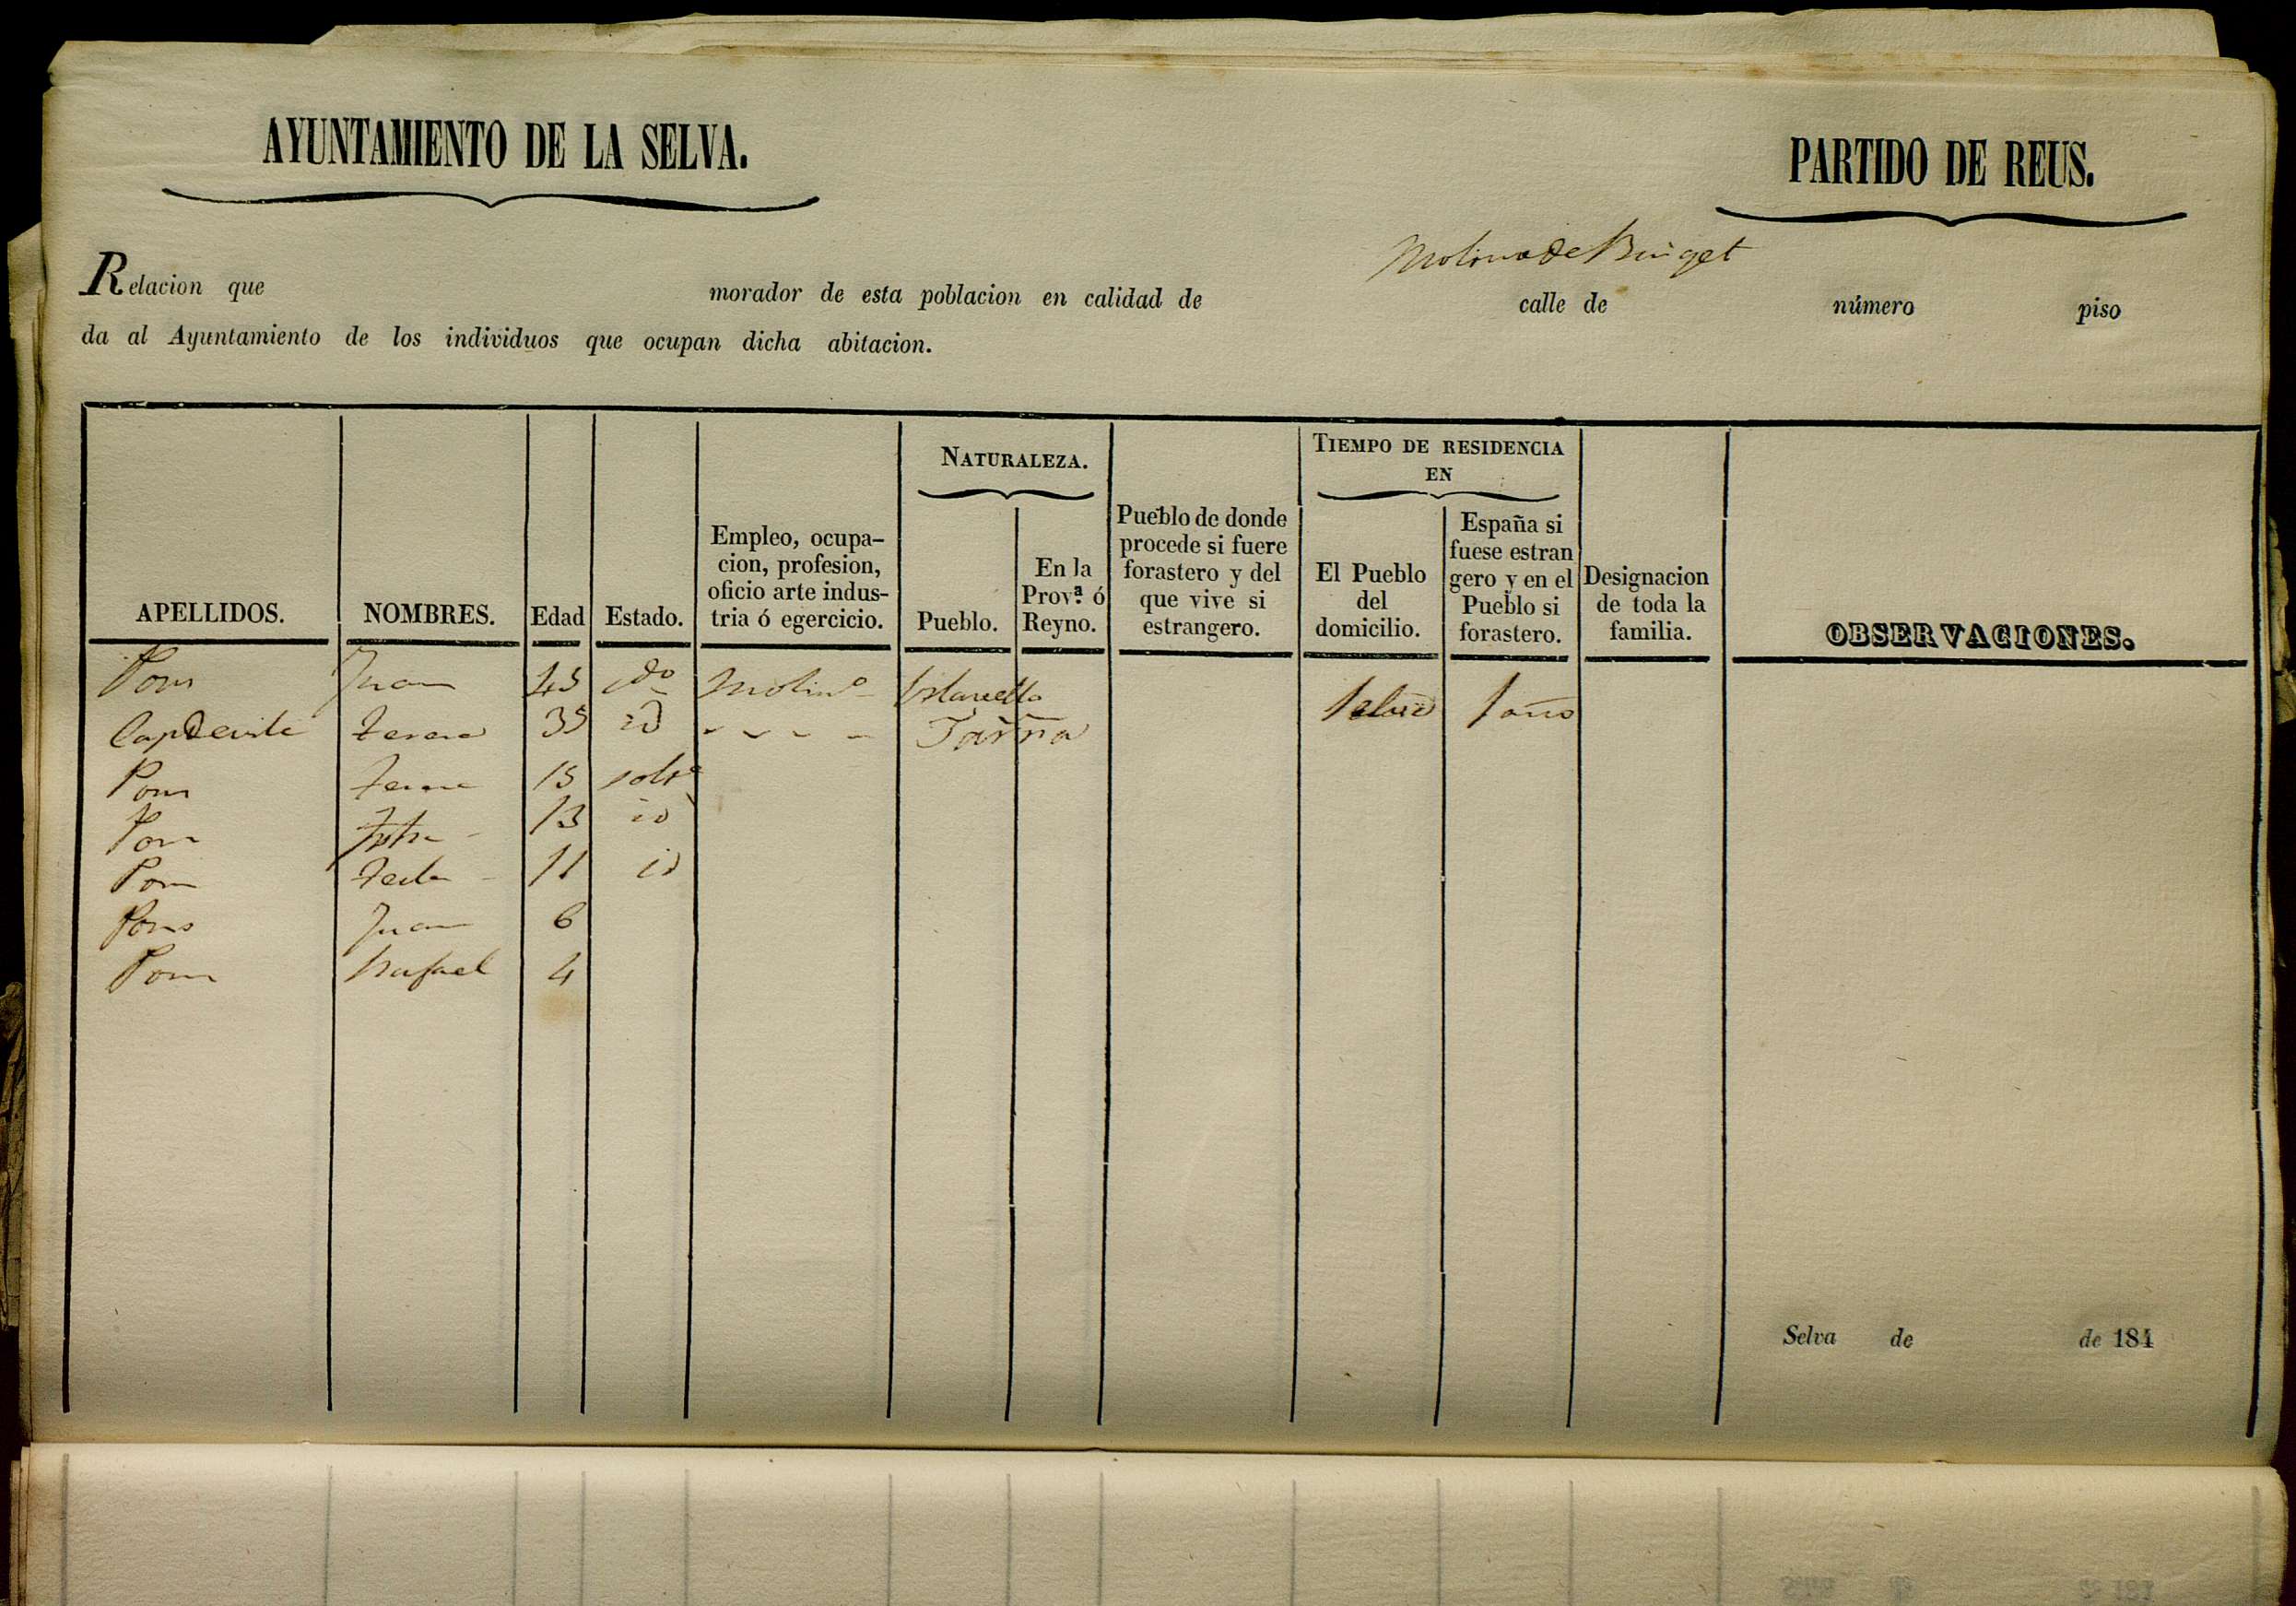 AYUNTAMIENTO DE LA SELVA.
PARTIDO DE REUS.
Molino de
Relacion que morador de esta poblacion en calidad de calle de número piso
da al Ayuntamiento de los individuos que ocupan dicha abitacion.
APELLIDOS. NOMBRES. Edad Estado. Empleo, ocupa-
cion, profesion,
oficio arte indus-
tria ó egercicio.
NATURALEZA.
Pueblo. En la
Prov.ª ó
Reyno.
Pueblo de donde
procede si fuere
forastero y del
que vive si
estrangero.
TIEMPO DE RESIDENCIA
EN
El Pueblo
del
domicilio.
España si
fuese estran
gero y en el
Pueblo si
forastero.
Designacion
de toda la
familia.
OBSERVACIONES.
Pons Juan 45 Molino Selva 1 año
Capdevila Teresa 35 id
Pons Teresa 15 solt.ª
Pons 13 id
Pons Tecla 11 id
Pons Juan 6
Pons Rafael 4
Selva de de 184